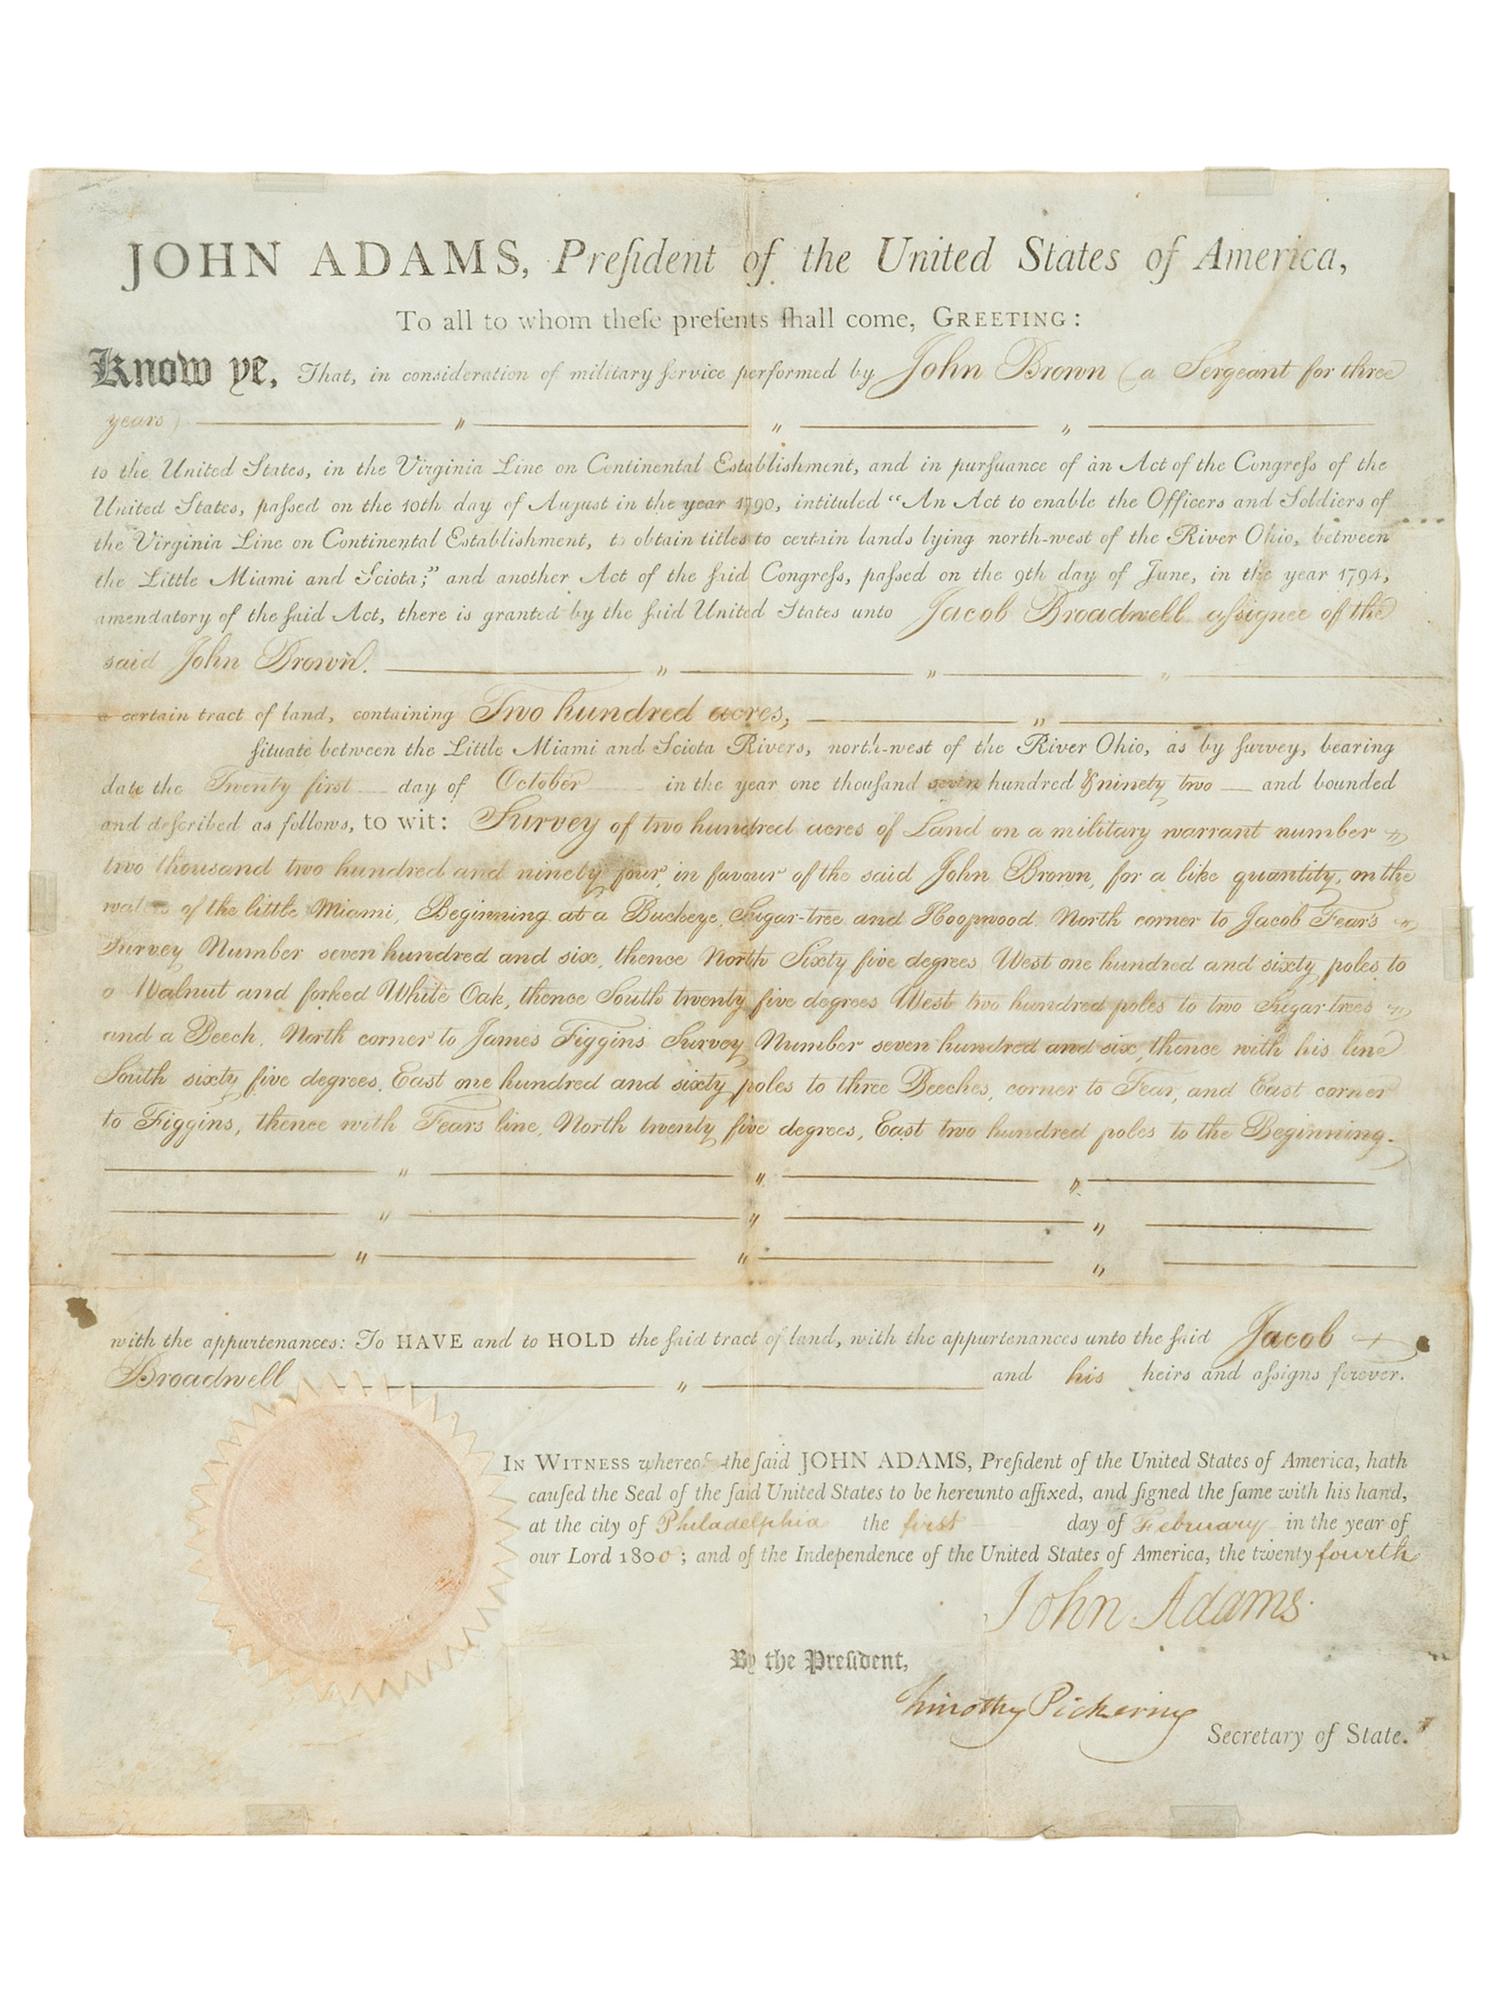 JOHN ADAMS, Preſident of the United States of America,
To all to whom theſe preſents ſhall come, GREETING:
Know ye, That, in conſideration of military ſervice performed by John Brown (a Sergeant for three
years) — " — " — " —
to the United States, in the Virginia Line on Continental Establishment, and in purſuance of an Act of the Congreſs of the
United States, paſsed on the 10th day of August in the year 1790, intituled “An Act to enable the Officers and Soldiers of
the Virginia Line on Continental Establishment, to obtain titles to certain lands lying north-west of the River Ohio, between
the Little Miami and Sciota;” and another Act of the ſaid Congreſs, paſsed on the 9th day of June, in the year 1794,
amendatory of the ſaid Act, there is granted by the ſaid United States unto Jacob Broadwell aſsignee of the
said John Brown. — " — " — " —
a certain tract of land, containing Two hundred acres, — " —
ſituate between the Little Miami and Sciota Rivers, north-west of the River Ohio, as by ſurvey, bearing
date the Twenty first — day of October in the year one thousand seven hundred & ninety two — and bounded
and deſcribed as follows, to wit: Survey of two hundred acres of Land on a military warrant number
two thousand two hundred and ninety four, in favour of the said John Brown, for a like quantity, on the
waters of the little Miami, Beginning at a Buckeye, Sugar-tree and Hoopwood North corner to Jacob Fears
Survey Number seven hundred and six, thence North Sixty five degrees West one hundred and sixty poles to
a Walnut and forked White Oak, thence South twenty five degrees West two hundred poles to two Sugar-trees
and a Beech, North corner to James Figgins Survey Number seven hundred and six, thence with his line
South sixty five degrees, East one hundred and sixty poles to three Beeches, corner to Fear, and East corner
to Figgins, thence with Fears line, North twenty five degrees, East two hundred poles to the Beginning.
— " — " — " —
— " — " — " —
— " — " — " —
with the appurtenances: To HAVE and to HOLD the ſaid tract of land, with the appurtenances unto the ſaid Jacob
Broadwell — " — and his heirs and aſsigns forever.
IN WITNESS whereof the ſaid JOHN ADAMS, Preſident of the United States of America, hath
cauſed the Seal of the ſaid United States to be hereunto affixed, and ſigned the ſame with his hand,
at the city of Philadelphia the first day of February in the year of
our Lord 1800; and of the Independence of the United States of America, the twenty fourth
John Adams.
By the Preſident,
Timothy Pickering
Secretary of State.